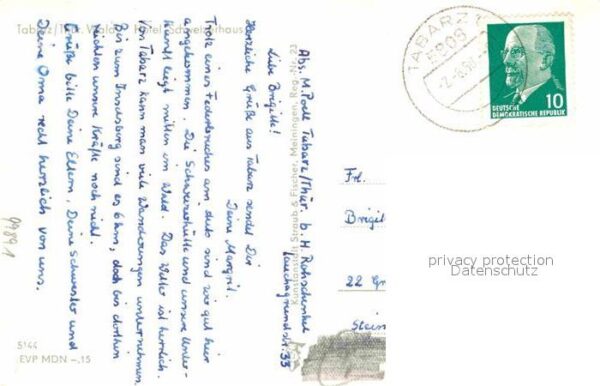 Tabarz/Thür. Wald Hotel Schweizerhaus
Abs. M. Podll Tabarz/Thür. b. H. Rohschenkel
Lauchagrundstr. 33
Liebe Brigitte!
Herzliche Grüße aus Tabarz sendet Dir
Deine Margrit.
Trotz eines Federbruches am Auto sind wir gut hier
angekommen. Die Schweizerhütte und unsere Unter-
kunft liegt mitten im Wald. Das Wetter ist herrlich.
Von Tabarz kann man viele Wanderungen unternehmen.
Bis zum Inselsberg sind es 6 km, doch bis dorthin
reichten unsere Kräfte noch nicht.
Grüße bitte Deine Eltern, Deine Schwester und
Deine Oma recht herzlich von uns.
Kunstanstalt Straub & Fischer, Meiningen, Reg.-Nr. 22
99891
5144
EVP MDN -.15
TABARZ 1
5808
DEUTSCHE
DEMOKRATISCHE REPUBLIK
10
Frl.
Brigit
22 Gr
Stein
privacy protection
Datenschutz